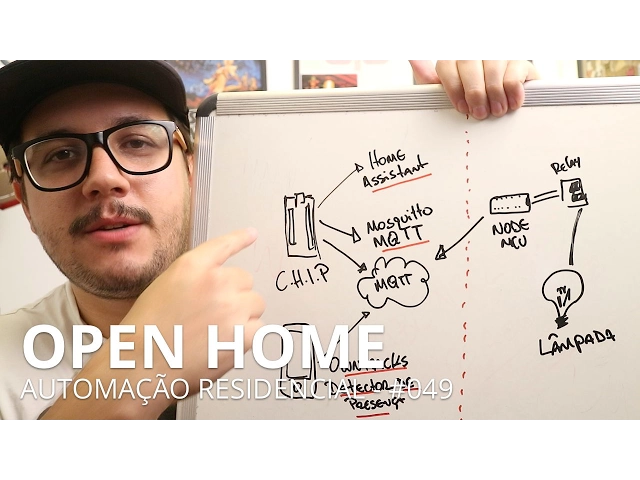 HOME
ASSISTANT
MOSQUITTO
MQTT
C.H.I.P
MQTT
RELAY
NODE
MCU
LÂMPADA
OWNTRACKS
DETECTOR DE
PRESENÇA
OPEN HOME
AUTOMAÇÃO RESIDENCIAL - #049